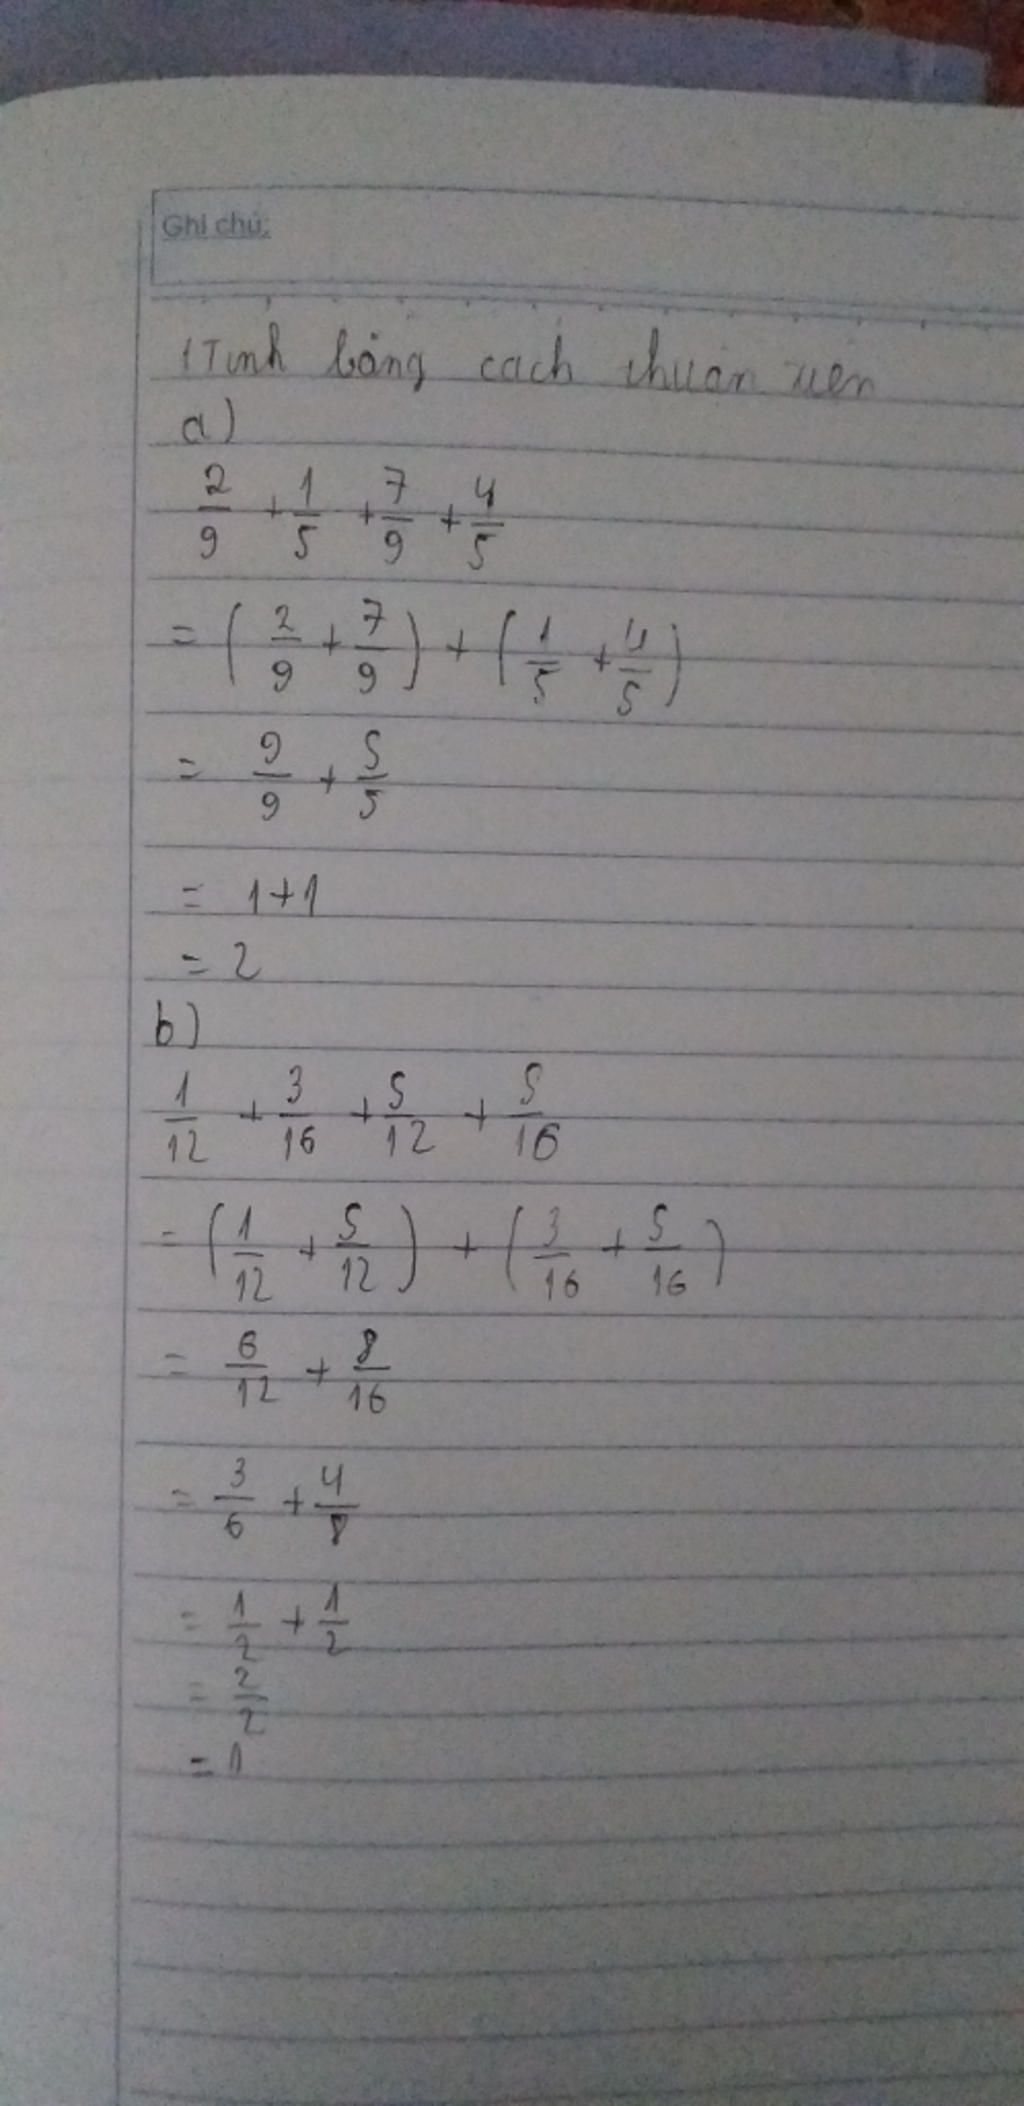 Ghi chú:
1 Tính bằng cách thuận tiện
a)
2/9 + 1/5 + 7/9 + 4/5
= (2/9 + 7/9) + (1/5 + 4/5)
= 9/9 + 5/5
= 1+1
= 2
b)
1/12 + 3/16 + 5/12 + 5/16
= (1/12 + 5/12) + (3/16 + 5/16)
= 6/12 + 8/16
= 3/6 + 4/8
= 1/2 + 1/2
= 2/2
= 1